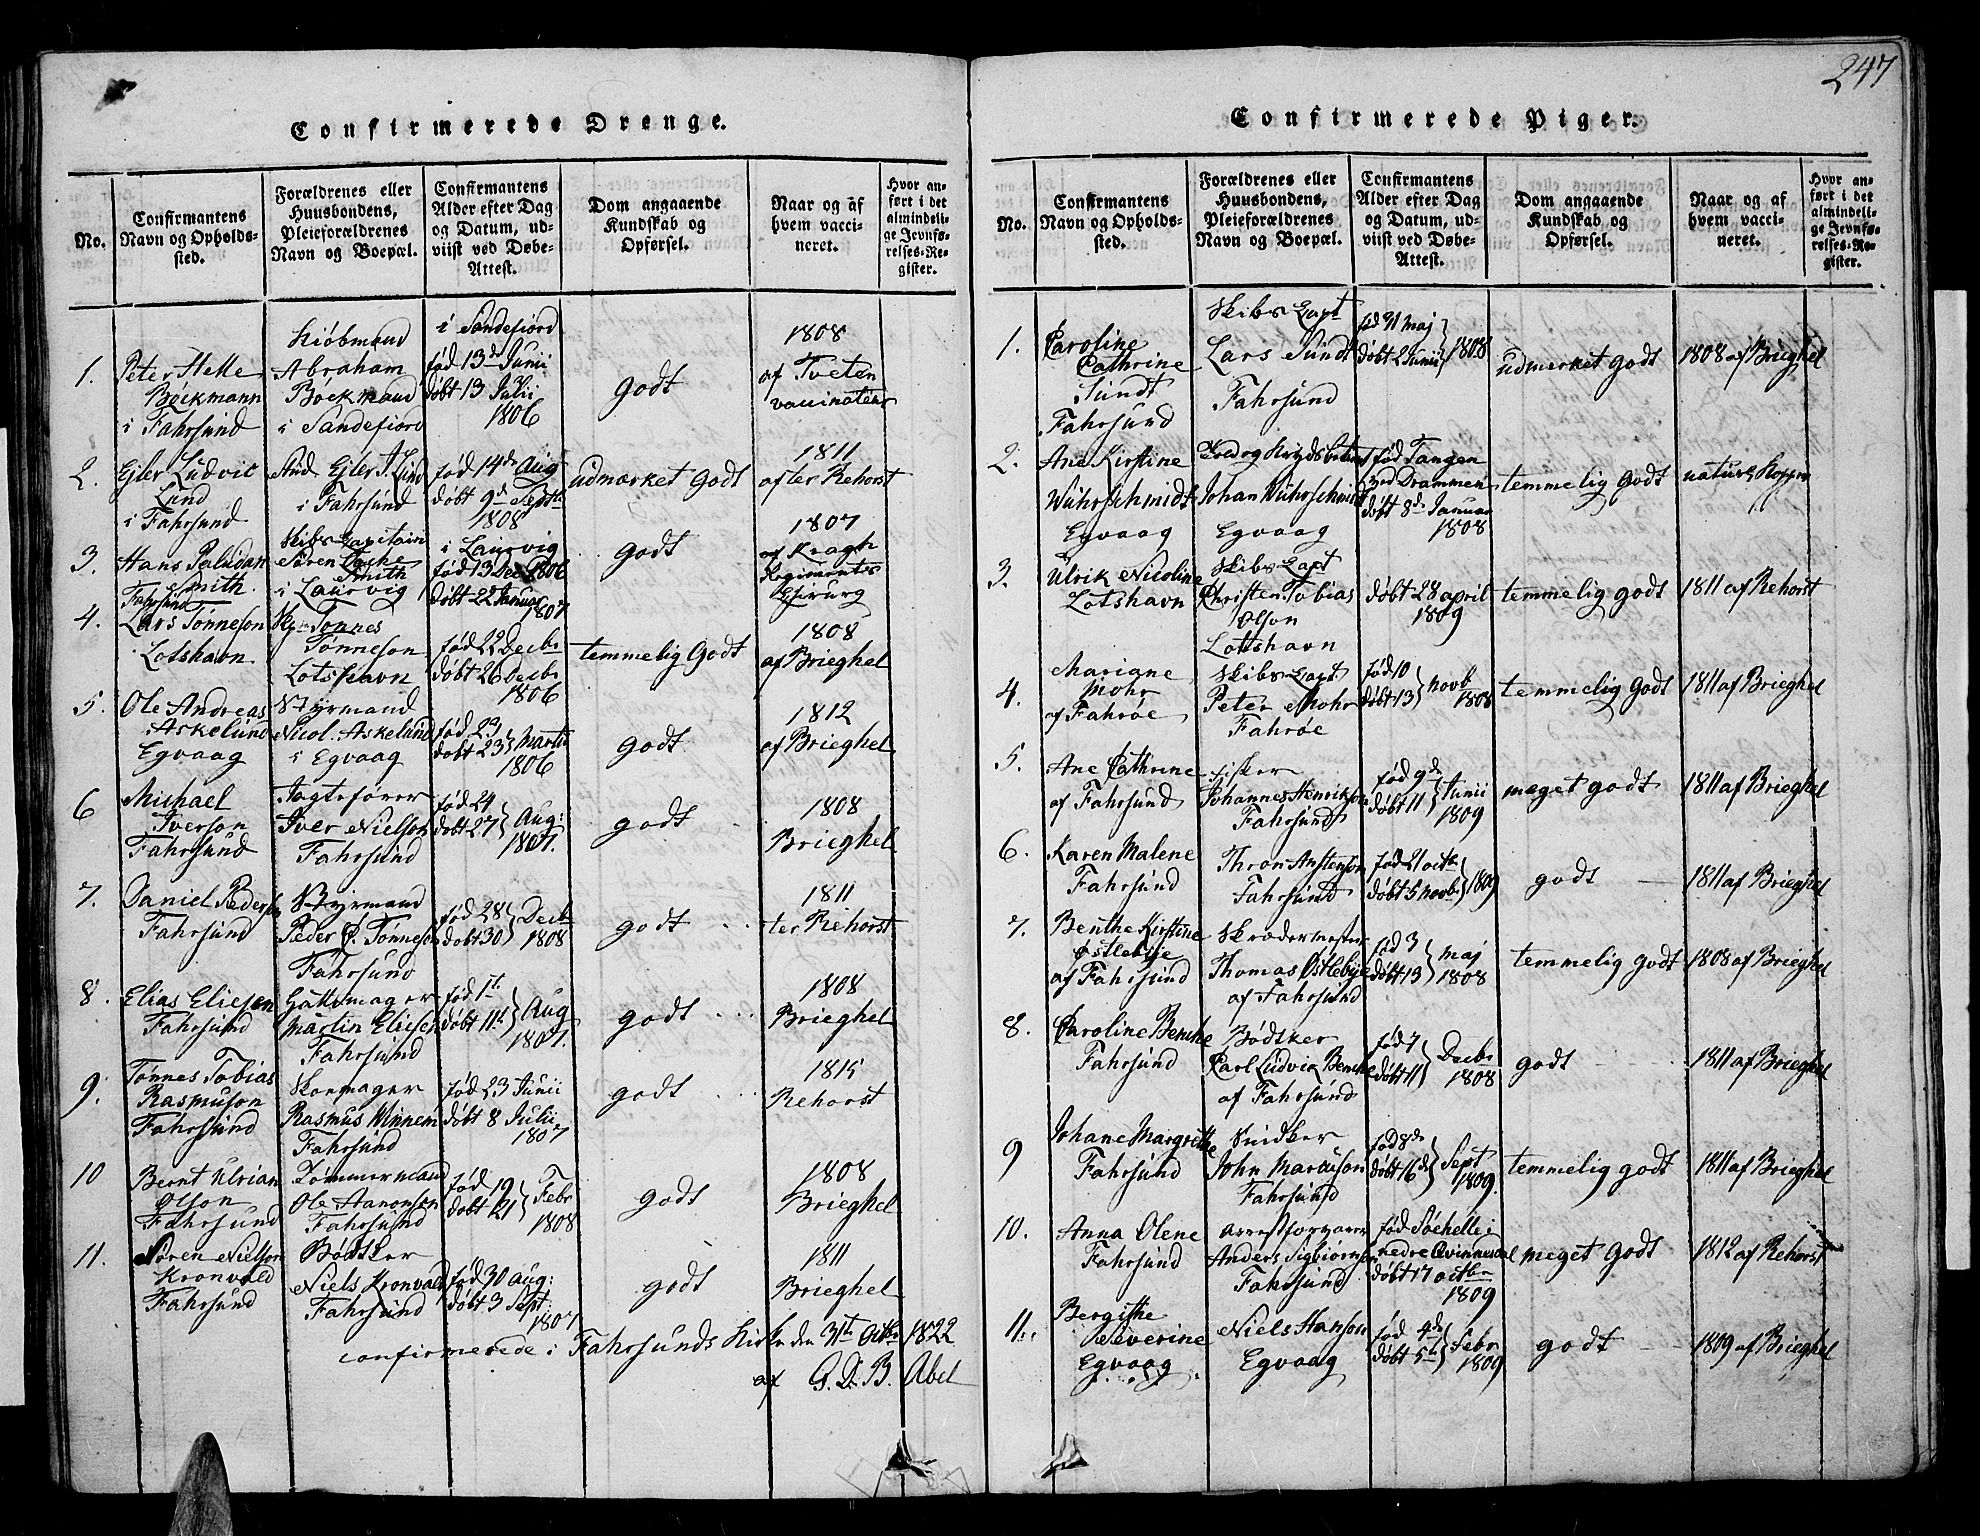 247
Confirmerede Drenge.
No.
Confirmantens Navn og Opholds-sted.
Forældrenes eller Huusbondens, Pleieforældrenes Navn og Boepæl.
Confirmantens Alder efter Dag og Datum, ud-viist ved Døbe-Attest.
Dom angaaende Kundskab og Opførsel.
Naar og af hvem vacci-neret.
Hvor an-ført i det almindeli-ge Jevnfø-relses-Re-gister.
1.
Peter Helle
Bøckmann
i Fahrsund
Kiøbmand
Abraham
Bøckmand
i Sandefiord
i Sandefiord
fød 13de Junii
døbt 13 Julii
1806
godt
1808
af Tveten
vaccinateur
2.
Ejler Ludvic
Lund
i Fahrsund
Ejler J. Lund
i Fahrsund
fød 14de Aug
døbt 9de Septb
1808
udmærket godt
1811
after Rehorst
3.
Hans Paludan
Smith.
Fahrsund
Skibs Capitain
Søren
Smith
i Laurvig
i Laurvig
fød 13 Dec 1806
døbt 22 Januar
1807
godt
1807
af Kragh
Regiments
Chirurg
4.
Lars Tonneson
Lotshavn
Tonnes
Tønneson
Lotshavn
fød 22 Decbr
døbt 26 Decbr
1806
temmelig Godt
1808
af Brieghel
5.
Ole Andreas
Askelund
Egvaag
Styrmand
Nicol. Askelund
i Egvaag
fød 23
døbt 23 } Martii
1806
godt
1812
af Brieghel
6
Michael
Iverson
Fahrsund
Jagtefører
Iver Nielson
Fahrsund
fød 24
døbt 27 } Aug:
1807.
godt
1808
Brieghel
7.
Daniel Pederson
Fahrsund
Styrmand
Peder C. Tønneson
Fahrsund
fød 28
døbt 30 } Decbr
1808
godt
1811
ter Rehorst
8.
Elias Eliesen
Fahrsund
Martin Eliesen
Fahrsund
fød 1st
døbt 11te } Aug
1807.
godt
1808
Brieghel
9.
Tønnes Tobias
Rasmuson
Fahrsund
Skomager
Rasmus Winnem
Fahrsund
fød 23 Junii
døbt 8 Julii
1807
godt
1815
Rehorst
10
Bernt Ulrian
Olson
Fahrsund
Tømmermand
Ole Aanonsen
Fahrsund
fød 19
døbt 21 } Febr
1808
godt
1808
Brieghel
11.
Søren Nielson
Kronvald
Fahrsund
Bødsker
Niels Kronvald
Fahrsund
fød 30 aug:
døbt 3 Sept:
1807
godt
1811
Brieghel
confirmerede i Fahrsunds Kirke den 3te Octbr 1822
af G. D. B. Abel
Confirmerede Piger.
No.
Confirmantens Navn og Opholds-sted.
Forældrenes eller Huusbondens, Pleieforældrenes Navn og Boepæl.
Confirmantens Alder efter Dag og Datum, ud-viist ved Døbe-Attest.
Dom angaaende Kundskab og Opførsel.
Naar og af hvem vacci-neret.
Hvor an-ført i det almindeli-ge Jevnfø-relses-Re-gister.
1.
Caroline
Cathrine
Sundt
Fahrsund
Skibs Capt
Lars Sundt
Fahrsund
fød 31 maj
døbt 2 Junii } 1808
udmerket godt
1808 af Brieghel
2.
Ane Kirstine
Wührschmidt
Egvaag
Johan Wührschmidt
Egvaag
fød Tangen
ved Drammen
døbt 8de Januar
1808
temmelig godt
naturl. Kopper
3.
Ulrik Nicoline
Lotshavn
Skibs Capt
Christen Tobias
Olson
Lottshavn
døbt 28 april
1809
temmelig godt
1811 af Rehorst
4.
Mariane
Mohr
af Fahrøe
Skibs Capt.
Peter Mohr
Fahrøe
fød 10
døbt 13 } novb
1808
temmelig godt
1811 af Brieghel
5.
Ane Cathrine
af Fahrsund
Fisker
Johannes Henrikson
Fahrsund
fød 9de
døbt 11 } Junii
1809
meget godt
1811 af Brieghel
6.
Karen Malene
Fahrsund
Thron Anstenson
Fahrsund
fød 21 octb
døbt 5 novb } 1809
godt
1811 af Brieghel
7.
Benthe Kirstine
Østlebye
af Fahrsund
Skrædermester
Thomas Østlebye
af Fahrsund
fød 3
døbt 13 } maj
1808
temmelig godt
1808 af Brieghel
8.
Caroline Benche
Fahrsund
Bødsker
Carl Ludvik Benche
af Fahrsund
fød 7
døbt 11 } Decbr
1808
godt
1811 af Brieghel
9
Johane Margrethe
Fahrsund
Snidker
John Marcuson
Fahrsund
fød 8de
døbt 16de } Sept
1809.
temmelig godt
1811 af Brieghel
10.
Anna Olene
Fahrsund
Arrestforvarer
Anders Sigbiørnsen
Fahrsund
fød Søehelle i
nedre Qvinnesdal
døbt 17 octbr
1809
meget godt
1812 af Rehorst
11.
Bergithe
Severine
Egvaag
Niels Hanson
Egvaag
fød 4de
døbt 5te } Febr
1809
godt
1809 af Brieghel